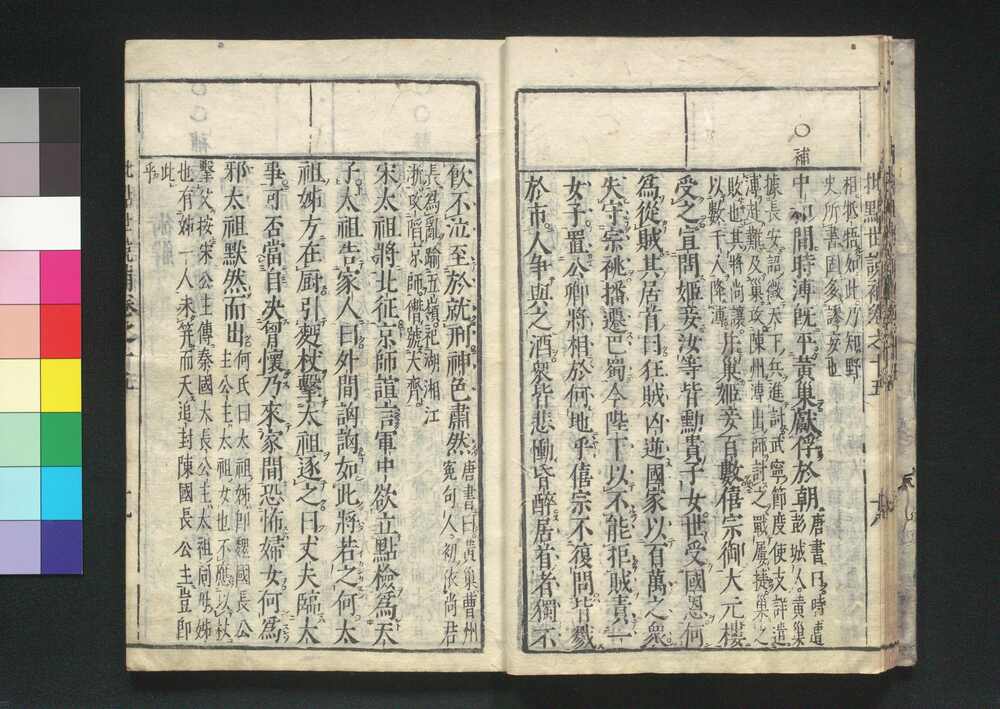 批點世說補卷之十五
相牴牾如此乃知野
史所書固多謬妄也
○補
中和間時溥既平黃巢獻俘於朝
唐書曰時溥
彭城人黃巢
據長安詔徵天下兵進討武寧節度使支詳遣
溥赴難及巢攻陳州溥出師討之戰屢捷巢之
敗也其將尚讓
以數千人降溥
并巢姬妾百數僖宗御大元樓
受之宣問姬妾汝等皆勳貴子女世受國恩何
為從賊其居首曰狂賊凶逆國家以百萬之衆
失守宗祧播遷巴蜀今陛下以不能拒賊責一
女子置公卿將相於何地乎僖宗不復問皆戮
於市人爭與之酒衆皆悲慟昏醉居首者獨不
飲不泣至於就刑神色肅然
唐書曰黃巢曹州
冤句人初依尚君
長為亂踰五嶺犯湖湘江
浙攻陷京師僭號大齊
宋太祖將北征京師諠言軍中欲立點檢為天
子太祖告家人曰外間詾詾如此將若之何太
祖姊方在厨引麪杖擊太祖逐之曰丈夫臨太
事可否當自决胷懷乃來家間恐怖婦女何為
邪太祖默然而出
何氏曰太祖姊即魏國長公
主公主太祖女也不應以杖
擊父按宋公主傳秦國大長公主太祖同母姊
也有姊一人未笄而夭追封陳國長公主豈即
此
乎
批點世說補卷之十五
十九